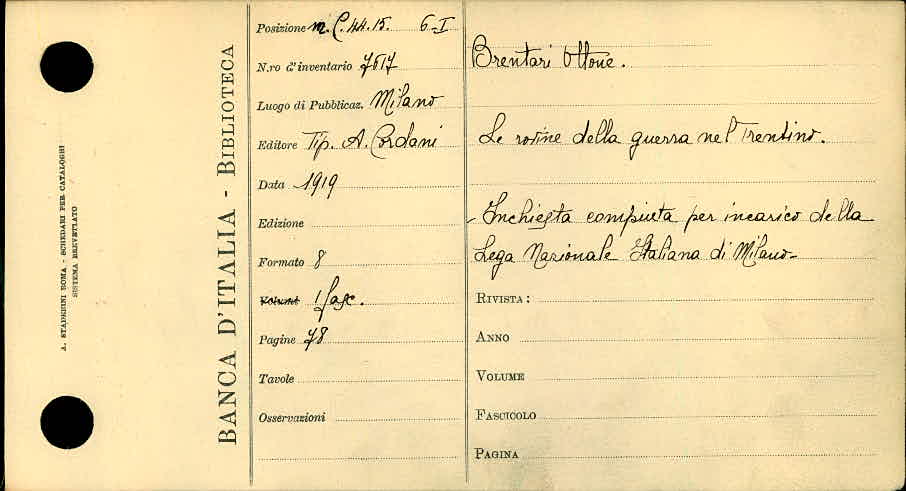 A. STADERINI ROMA - SCHEDARI PER CATALOGHI
SISTEMA BREVETTATO
BANCA D'ITALIA - BIBLIOTECA
Posizione m. C. 44. 15. 6-I
N.ro d'inventario 7617
Luogo di Pubblicaz. Milano
Editore Tip. A. Cordani
Data 1919
Edizione
Formato 8
Volumi 1 fasc.
Pagine 78
Tavole
Osservazioni
Brentari Ottone.
Le rovine della guerra nel Trentino.
- Inchiesta compiuta per incarico della
Lega Nazionale Italiana di Milano -
RIVISTA:
ANNO
VOLUME
FASCICOLO
PAGINA